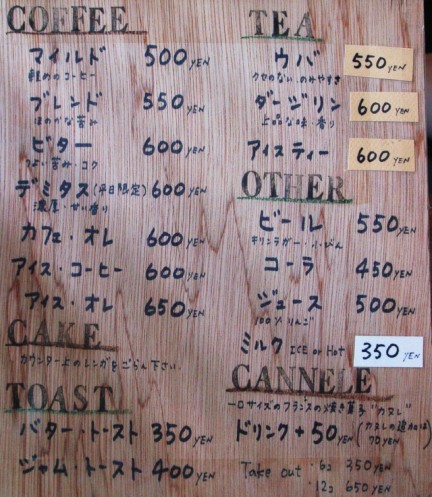 COFFEE
マイルド 500 YEN
軽めのコーヒー
ブレンド 550 YEN
ほのかな苦み
ビター 600 YEN
苦み・コク
デミタス(平日限定) 600 YEN
濃厚・香り
カフェ・オレ 600 YEN
アイス・コーヒー 600 YEN
アイス・オレ 650 YEN
CAKE
カウンター上のレンガをごらん下さい.
TOAST
バター・トースト 350 YEN
ジャム・トースト 400 YEN
TEA
ウバ 550 YEN
クセのない、のみやすさ
ダージリン 600 YEN
上品な味・香り
アイスティー 600 YEN
OTHER
ビール 550 YEN
キリンラガー・小びん
コーラ 450 YEN
ジュース 500 YEN
100%りんご
ミルク ICE or Hot 350 YEN
CANNELE
一口サイズのフランスの焼き菓子"カヌレ"
ドリンク+50YEN (カヌレの追加は 70YEN)
Take out ・6コ 350 YEN
・12コ 650 YEN